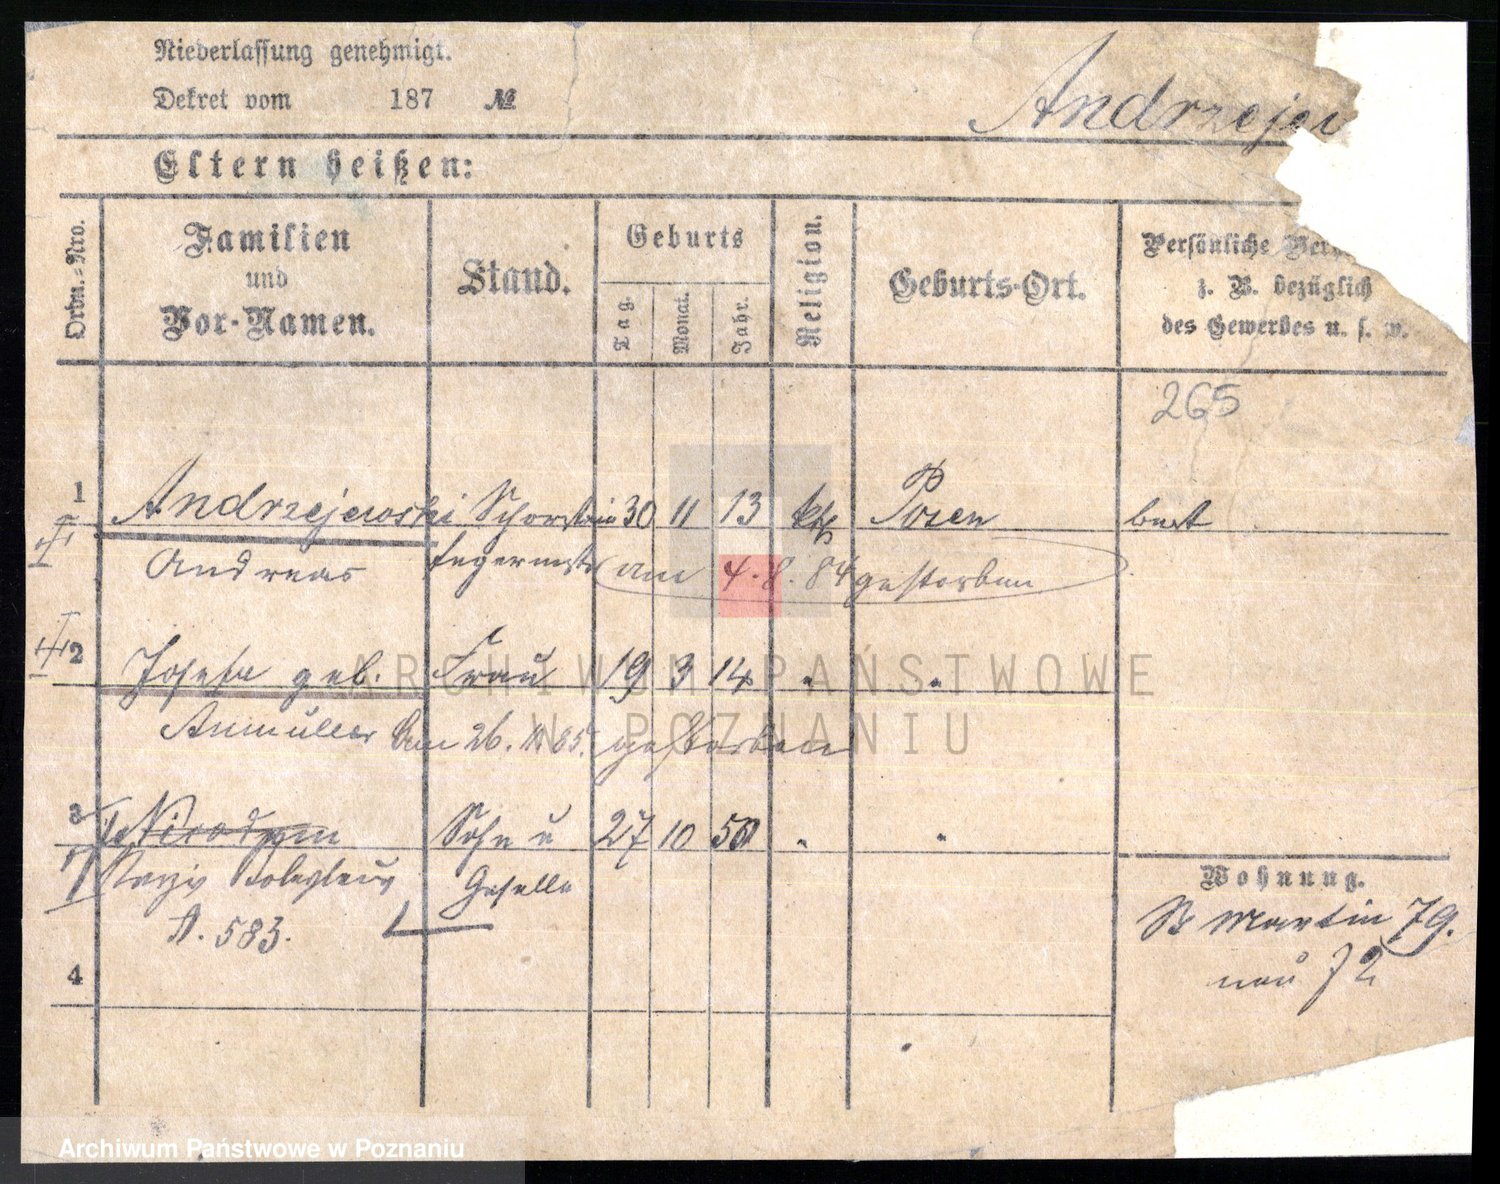 Niederlassung genehmigt.
Dekret vom 187 №
Andrzejew
Eltern heißen:
Ordn.-Nro.
Familien
und
Vor-Namen.
Stand.
Geburts
Tag.
Monat.
Jahr.
Religion.
Geburts-Ort.
Persönliche
z. B. bezüglich
des Gewerbes u. s. w.
265
1 Andrzejewski Schornstein 30 11 13 kth Posen
Andreas fegermstr (am 4.8.84 gestorben)
2 Josefa geb. Frau 19 3 14 " "
Anmuller Am 26. 85. gestorben
3 Nicodem Sohn u 27 10 50 " "
Boleslaus Geselle
A. 583.
4
Wohnung.
St Martin 79.
neu 72
ARCHIWUM PAŃSTWOWE
W POZNANIU
Archiwum Państwowe w Poznaniu